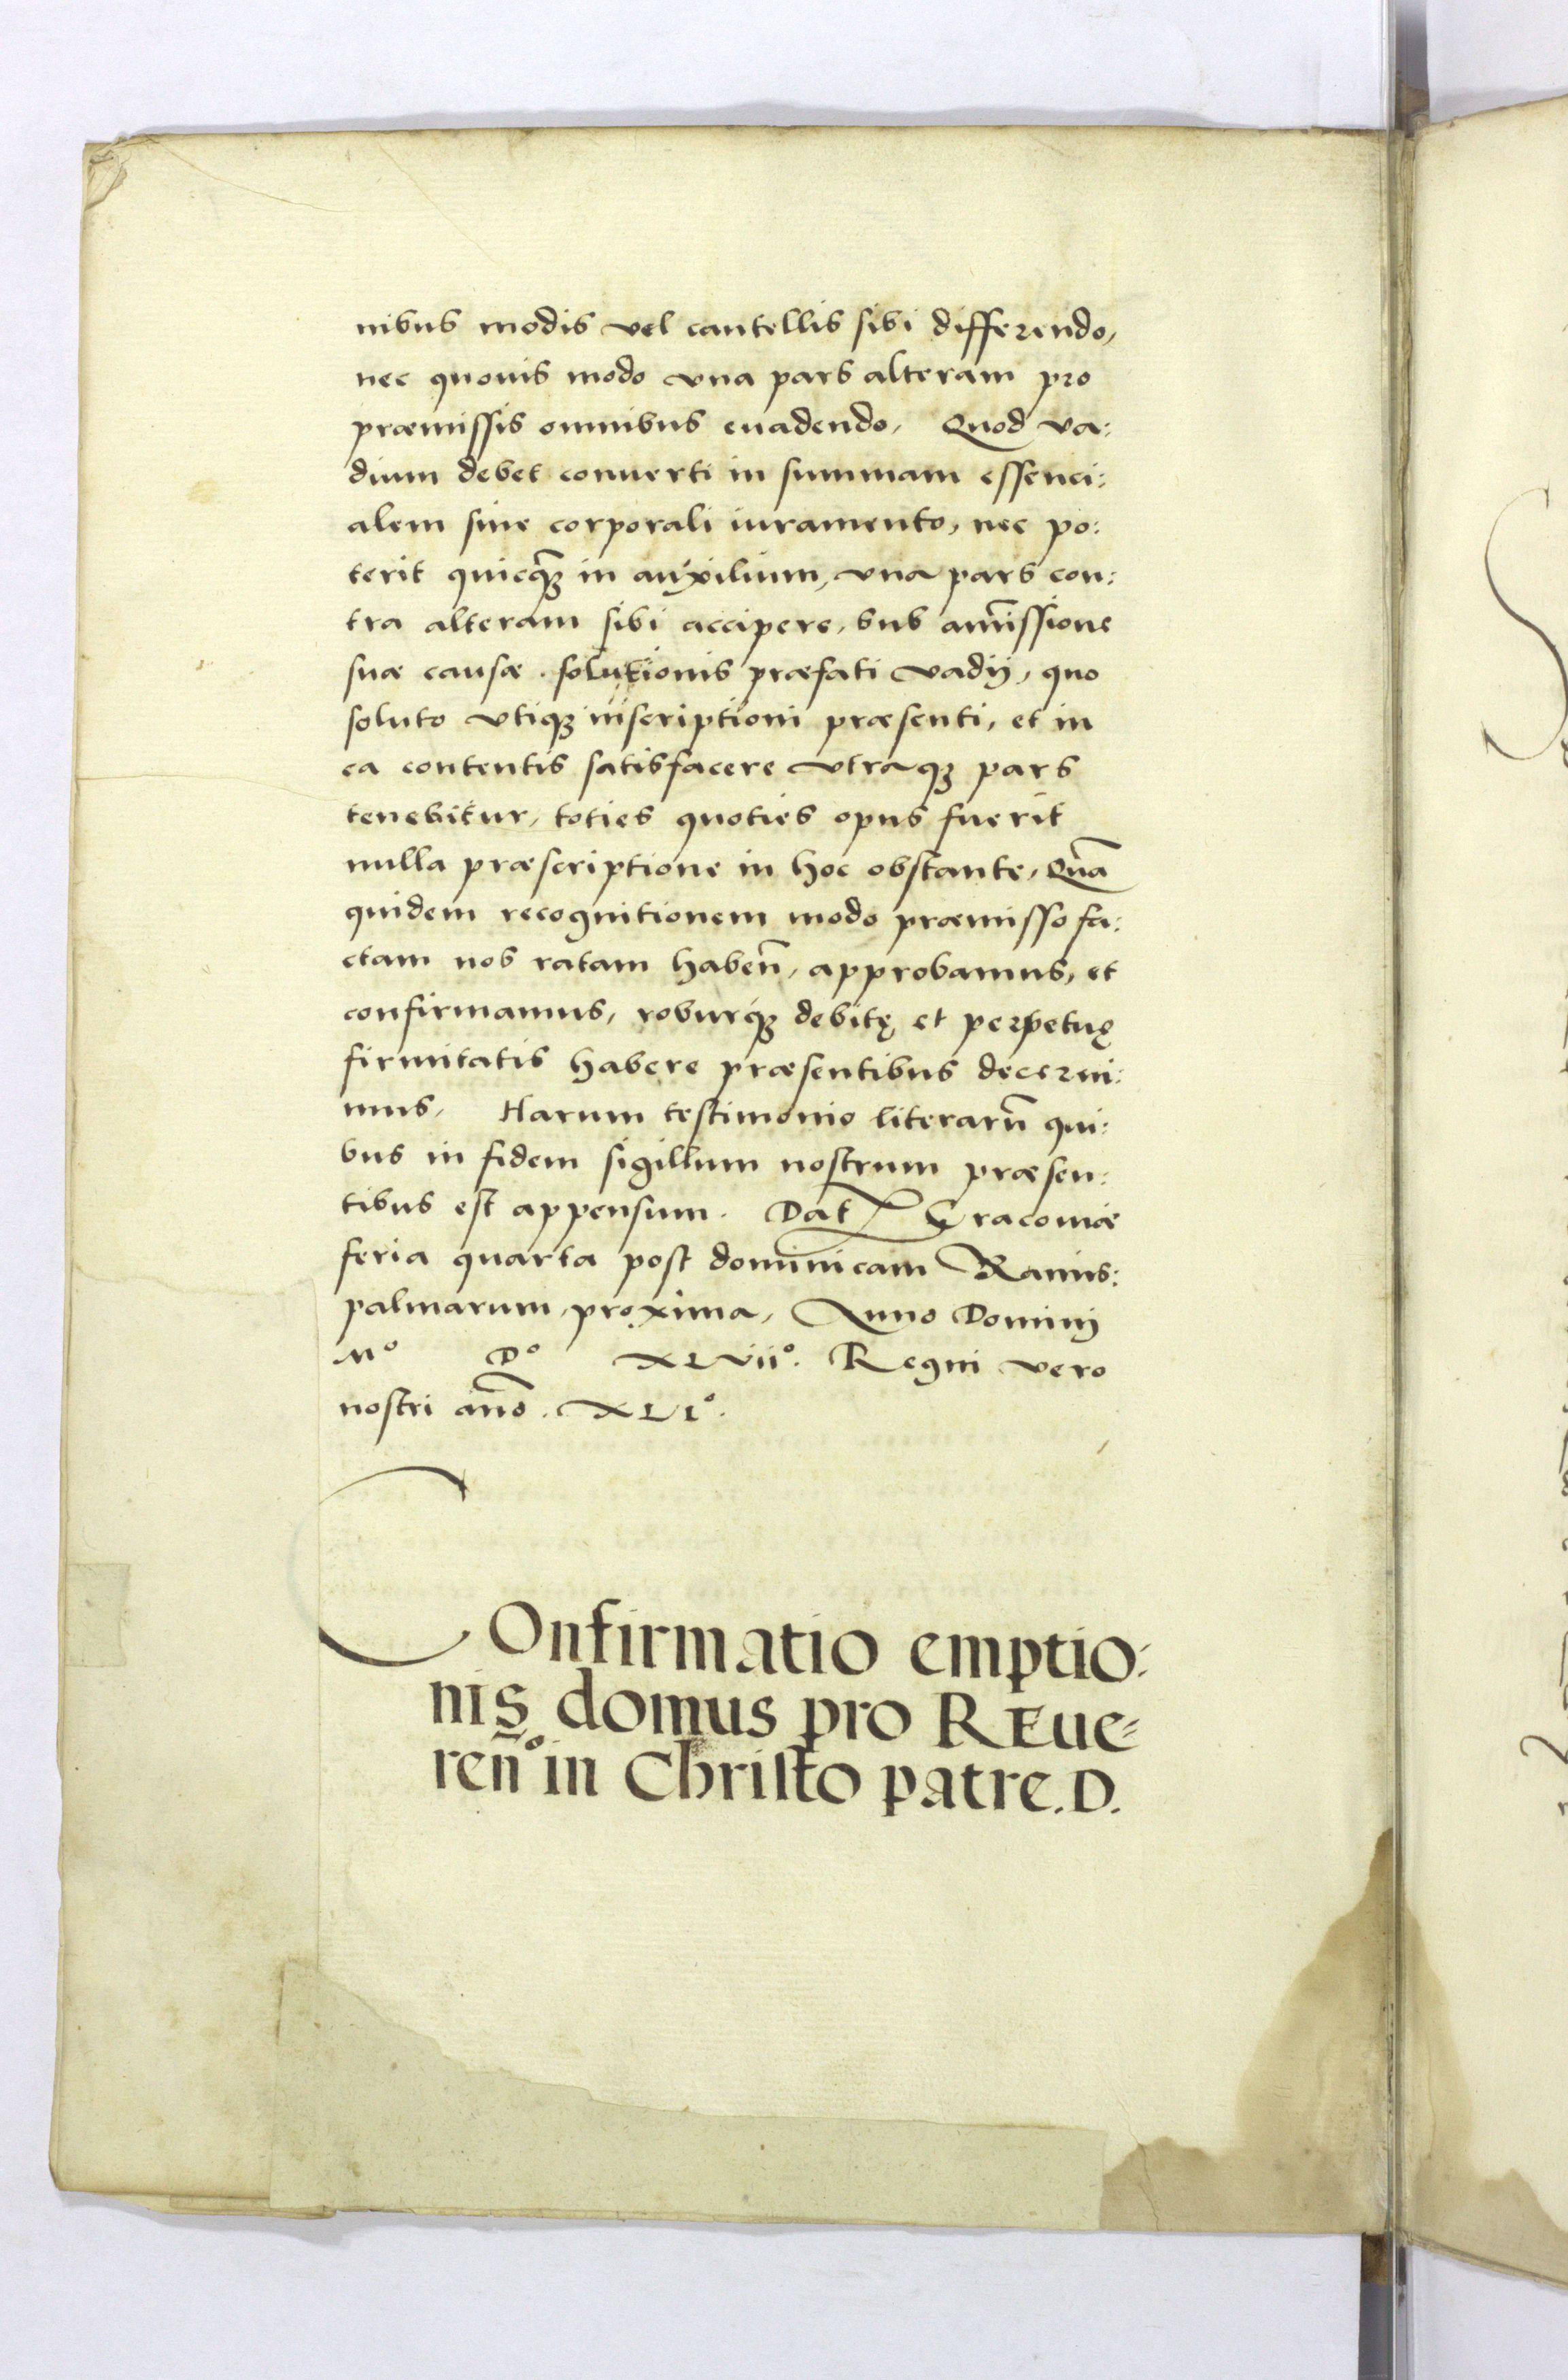 nibus modis vel cautellis sibi differendo,
nec quouis modo vna pars alteram pro
præmissis omnibus euadendo, Quod va:
dium debet conuerti in summam essenci:
alem sine corporali iuramento, nec po:
terit quicq̃ꝫ in auxilium, vna pars con:
tra alteram sibi accipere, sub am̃issione
suæ causæ . solutionis præfati vadij, quo
soluto vtiqꝫ inscriptioni præsenti, et in
ea contentis satisfacere vtraqꝫ pars
tenebitur, toties quoties opus fuerit
nulla præscriptione in hoc obstante, Quã
quidem recognitionem modo præmisso fa:
ctam nos ratam habeñ, approbamus, et
confirmamus, roburqꝫ debitę et perpetuę
firmitatis habere præsentibus decerni:
mus, Harum testimonio literarũ qui:
bus in fidem sigillum nostrum præsen:
tibus est appensum. Dat Cracouiæ
feria quarta post dominicam Ramis:
palmarum, proxima, Anno Domini
Mº Dº XLviiº. Regni vero
nostri añõ. XLIº.
COnfirmatio emptio:
nis domus pro REue=
reñº in Christo patre. D.